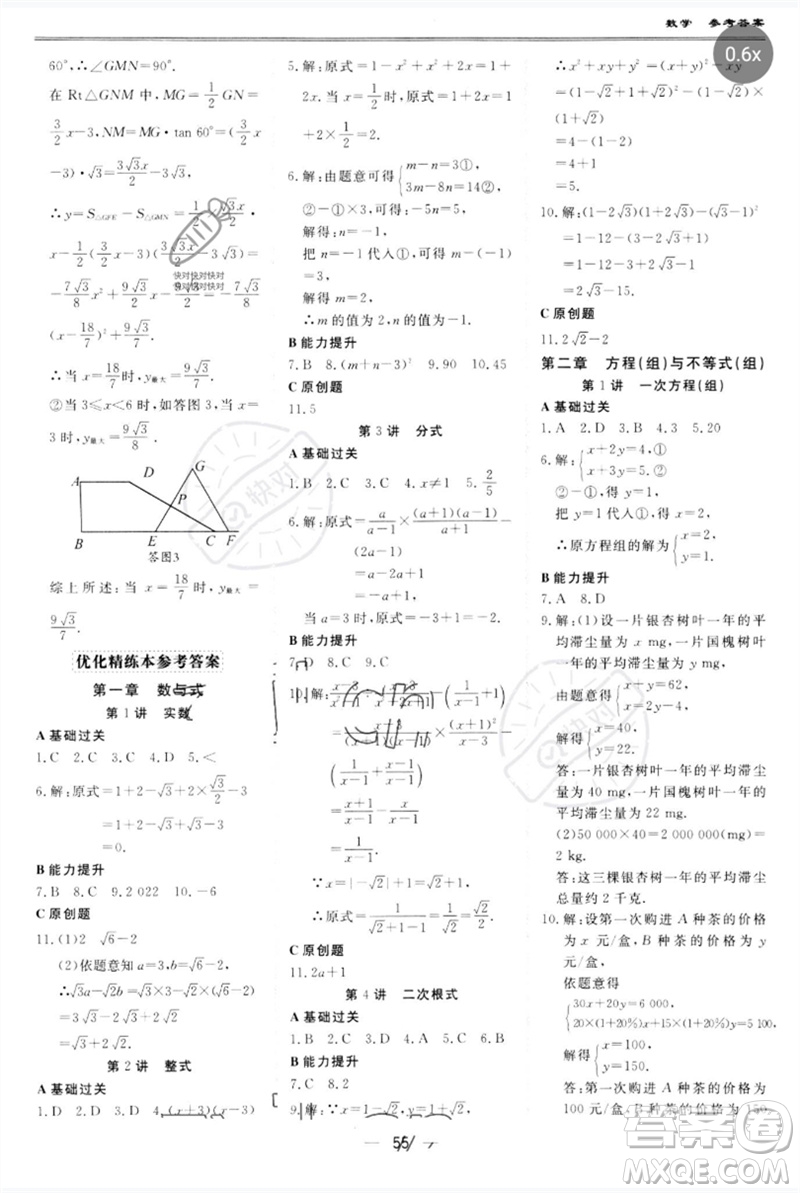 数学 参考答案
0.6x
60°.∴∠GMN=90°.
在 Rt△GNM 中,MG=1/2 GN=
3/2 x-3,NM=MG·tan 60°=(3/2
x-3)·√3=3√3x/2-3√3.
∴y=S△GFE-S△GMN=1/2·√3/2 x·
x-1/2(3/2 x-3)(3√3x/2-3√3)=
-7√3/8 x²+9√3/2 x-9√3/2=-7√3/8
(x-18/7)²+9√3/7.
∴当 x=18/7 时,y最大=9√3/7.
②当 3≤x<6 时,如答图 3,当 x=
3 时,y最大=9√3/8.
A D G P B E C F
答图3
综上所述:当 x=18/7 时,y最大=
9√3/7.
优化精练本参考答案
第一章 数与式
第 1 讲 实数
A 基础过关
1.C 2.C 3.C 4.D 5.<
6.解:原式=1+2-√3+√3-3
=1+2-√3+√3-3
=0.
B 能力提升
7.B 8.C 9.2 022 10.-6
C 原创题
11.(1)2 √6-2
(2)依题意知 a=3,b=√6-2.
∴√3a-√2b=√3×3-√2(√6-2)
=3√3-2√3+2√2
=√3+2√2.
第 2 讲 整式
A 基础过关
1.D 2.D 3.C 4.(x+3)(x-3)
5.解:原式=1-x²+x²+2x=1+
2x=当 x=1/2 时,原式=2x+1=1
+2×1/2=2.
6.解:由题意可得{m-n=3①,
3m-6n=14②,
②-①×3,可得:-5n=5,
解得:n=-1.
把 n=-1 代入①,可得:m-(-1)
=3,
解得 m=2,
∴m 的值为 2,n 的值为-1.
B 能力提升
7.B 8.(m+n-3)² 9.90 10.45
C 原创题
11.5
第 3 讲 分式
A 基础过关
1.B 2.C 3.C 4.x≠1 5.2/5
6.解:原式=a/(a-1)×(a+1)(a-1)/(a+1)-
(2a-1)
=a-2a+1
=-a+1.
当 a=3 时,原式=-3+1=-2.
B 能力提升
7.D 8.B 9.A
=(x+1)/(x-1)×1/(x+1)
=1/(x-1).
∵x=|-√2|+1=√2+1,
∴原式=1/(√2+1-1)=1/√2=√2/2.
C 原创题
11.2a+1
第 4 讲 二次根式
A 基础过关
1.B 2.D 3.D 4.A 5.C 6.B
B 能力提升
7.C 8.2
9.解:∵x=1-√2,y=1+√2,
∴x²+xy+y²=(x+y)²-xy
=(1-√2+1+√2)²-(1-√2)×
(1+√2)
=4+1
=5.
10.解:(1-2√3)(1+2√3)-(1-√3)²
=1-12-(1-2√3+3)
=1-12-3+2√3-1
=2√3-15.
C 原创题
11.2√2-2
第二章 方程(组)与不等式(组)
第 1 讲 一次方程(组)
A 基础过关
1.A 2.D 3.B 4.3 5.20
6.解:{x+2y=4,①
x+3y=5.②
②-①,得 y=1.
把 y=1 代入①,得 x=2.
∴原方程组的解为{x=2,
y=1.
B 能力提升
7.A 8.D
9.解:(1)设一片银杏树叶一年的平
均滞尘量为 x mg,一片国槐树叶一
年的平均滞尘量为 y mg,
由题意得{x+y=62,
x=2y-4,
解得{x=40,
y=22.
答:一片银杏树叶一年的平均滞尘
量为 40 mg,一片国槐树叶一年的
平均滞尘量为 22 mg.
(2)50 000×40=2 000 000(mg)=
2 kg.
答:这三棵银杏树一年的平均滞尘
总量约 2 千克.
10.解:设第一次购进 A 种茶的价格
为 x 元/盒,B 种茶的价格为 y
元/盒,
依题意得
{30x+20y=6 000,
解得{x=100,
y=150.
答:第一次购进 A 种茶的价格为
100 元/盒,B 种茶的价格为 150
答案圈
MXQE.COM